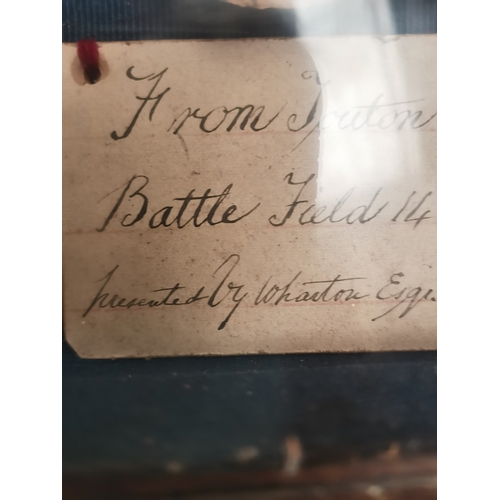 From Touton
Battle Field 14
presented by Wharton Esqr.